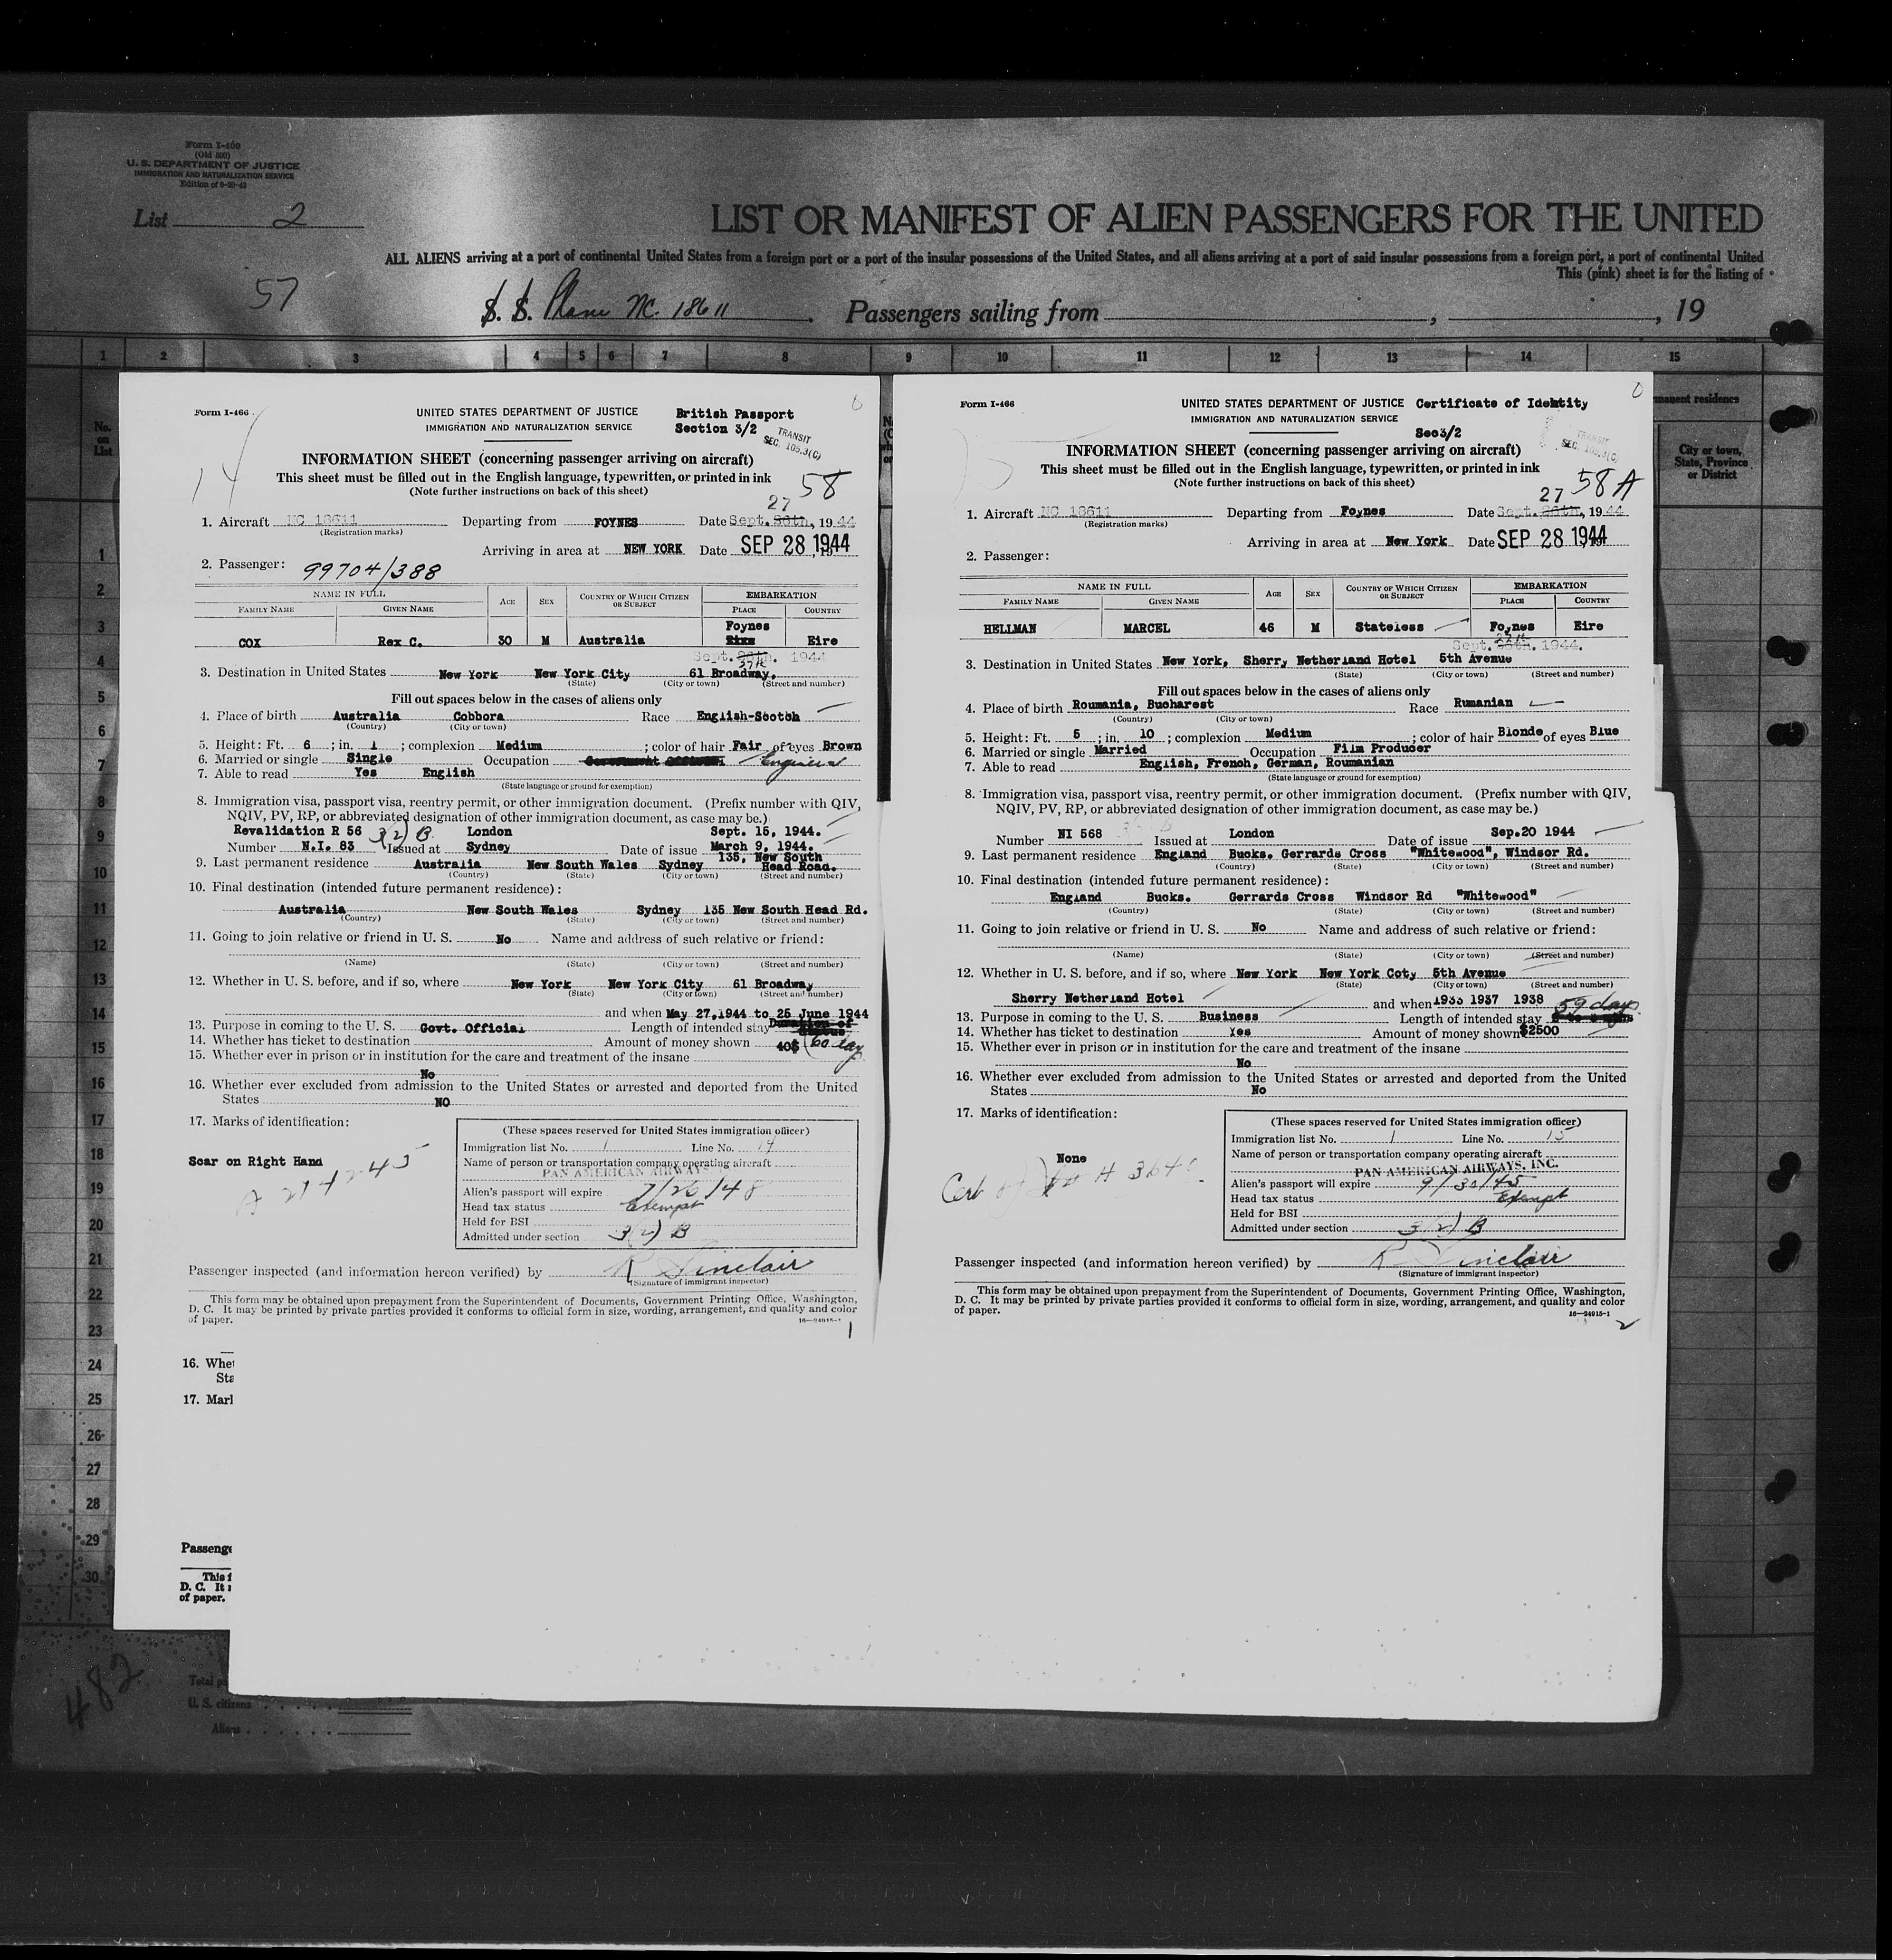 Form I-460
(Old 500)
U. S. DEPARTMENT OF JUSTICE
IMMIGRATION AND NATURALIZATION SERVICE
List 2
LIST OR MANIFEST OF ALIEN PASSENGERS FOR THE UNITED
ALL ALIENS arriving at a port of continental United States from a foreign port or a port of the insular possessions of the United States, and all aliens arriving at a port of said insular possessions from a foreign port, a port of continental United
This (pink) sheet is for the listing of
57
S. S. Plane NC. 18611 Passengers sailing from , , 19
1 2 3 4 5 6 7 8 9 10 11 12 13 14 15
No. on List
manent residence
City or town, State, Province or District
1
2
3
4
5
6
7
8
9
10
11
12
13
14
15
16
17
18
19
20
21
22
23
24
25
26
27
28
29
30
Form I-466
14
UNITED STATES DEPARTMENT OF JUSTICE
IMMIGRATION AND NATURALIZATION SERVICE
British Passport
Section 3/2
TRANSIT
SEC. 105.3(C)
INFORMATION SHEET (concerning passenger arriving on aircraft)
This sheet must be filled out in the English language, typewritten, or printed in ink
(Note further instructions on back of this sheet)
58
27
1. Aircraft NC 18611 Departing from FOYNES Date Sept. 26th, 1944
(Registration marks)
Arriving in area at NEW YORK Date SEP 28 1944
2. Passenger: 99704/388
NAME IN FULL
FAMILY NAME GIVEN NAME AGE SEX COUNTRY OF WHICH CITIZEN OR SUBJECT EMBARKATION
PLACE COUNTRY
Foynes
COX Rex C. 30 M Australia Eire
Sept. 26th. 1944
27th
3. Destination in United States New York New York City 61 Broadway.
(State) (City or town) (Street and number)
Fill out spaces below in the cases of aliens only
4. Place of birth Australia Cobbora Race English-Scotch
(Country) (City or town)
5. Height: Ft. 6 ; in. 1 ; complexion Medium ; color of hair Fair of eyes Brown
6. Married or single Single Occupation Government Official Engineer
7. Able to read Yes English
(State language or ground for exemption)
8. Immigration visa, passport visa, reentry permit, or other immigration document. (Prefix number with QIV,
NQIV, PV, RP, or abbreviated designation of other immigration document, as case may be.)
Revalidation R 56 3(2) B London Sept. 15, 1944.
Number N.I. 83 Issued at Sydney Date of issue March 9, 1944.
135, New South
9. Last permanent residence Australia New South Wales Sydney Head Road.
(Country) (State) (City or town) (Street and number)
10. Final destination (intended future permanent residence):
Australia New South Wales Sydney 135 New South Head Rd.
(Country) (State) (City or town) (Street and number)
11. Going to join relative or friend in U. S. No Name and address of such relative or friend:
(Name) (State) (City or town) (Street and number)
12. Whether in U. S. before, and if so, where New York New York City 61 Broadway
(State) (City or town) (Street and number)
and when May 27,1944 to 25 June 1944
13. Purpose in coming to the U. S. Govt. Official Length of intended stay Duration of Status
14. Whether has ticket to destination Amount of money shown 40$ 60 day
15. Whether ever in prison or in institution for the care and treatment of the insane
No
16. Whether ever excluded from admission to the United States or arrested and deported from the United
States NO
17. Marks of identification:
Scar on Right Hand
(These spaces reserved for United States immigration officer)
Immigration list No. 1 Line No. 14
Name of person or transportation company operating aircraft
PAN AMERICAN AIRWAYS
Alien's passport will expire 7/26/48
Head tax status Exempt
Held for BSI
Admitted under section 3(2) B
Passenger inspected (and information hereon verified) by R Sinclair
(Signature of immigrant inspector)
This form may be obtained upon prepayment from the Superintendent of Documents, Government Printing Office, Washington,
D. C. It may be printed by private parties provided it conforms to official form in size, wording, arrangement, and quality and color
of paper.
16—24915-1
1
Form I-466
15
UNITED STATES DEPARTMENT OF JUSTICE
IMMIGRATION AND NATURALIZATION SERVICE
Certificate of Identity
Sec3/2
TRANSIT
INFORMATION SHEET (concerning passenger arriving on aircraft)
This sheet must be filled out in the English language, typewritten, or printed in ink
(Note further instructions on back of this sheet)
27 58A
1. Aircraft NC 18611 Departing from Foynes Date Sept. 26th, 1944
(Registration marks)
Arriving in area at New York Date SEP 28 1944
2. Passenger:
NAME IN FULL
FAMILY NAME GIVEN NAME AGE SEX COUNTRY OF WHICH CITIZEN OR SUBJECT EMBARKATION
PLACE COUNTRY
HELLMAN MARCEL 46 M Stateless Foynes Eire
27th
Sept. 26th. 1944.
3. Destination in United States New York, Sherry Netherland Hotel 5th Avenue
(State) (City or town) (Street and number)
Fill out spaces below in the cases of aliens only
4. Place of birth Roumania, Bucharest Race Rumanian
(Country) (City or town)
5. Height: Ft. 5 ; in. 10 ; complexion Medium ; color of hair Blonde of eyes Blue
6. Married or single Married Occupation Film Producer
7. Able to read English, French, German, Roumanian
(State language or ground for exemption)
8. Immigration visa, passport visa, reentry permit, or other immigration document. (Prefix number with QIV,
NQIV, PV, RP, or abbreviated designation of other immigration document, as case may be.)
Number NI 568 Issued at London Date of issue Sep.20 1944
9. Last permanent residence England Bucks. Gerrards Cross "Whitewood", Windsor Rd.
(Country) (State) (City or town) (Street and number)
10. Final destination (intended future permanent residence):
England Bucks. Gerrards Cross Windsor Rd "Whitewood"
(Country) (State) (City or town) (Street and number)
11. Going to join relative or friend in U. S. No Name and address of such relative or friend:
(Name) (State) (City or town) (Street and number)
12. Whether in U. S. before, and if so, where New York New York Coty 5th Avenue
(State) (City or town) (Street and number)
Sherry Netherland Hotel and when 1933 1937 1938 59 days
13. Purpose in coming to the U. S. Business Length of intended stay
14. Whether has ticket to destination Yes Amount of money shown $2500
15. Whether ever in prison or in institution for the care and treatment of the insane
No
16. Whether ever excluded from admission to the United States or arrested and deported from the United
States No
17. Marks of identification:
None
(These spaces reserved for United States immigration officer)
Immigration list No. 1 Line No. 15
Name of person or transportation company operating aircraft
PAN AMERICAN AIRWAYS, INC.
Alien's passport will expire 9/30/45
Head tax status Exempt
Held for BSI
Admitted under section 3(2) B
Passenger inspected (and information hereon verified) by R Sinclair
(Signature of immigrant inspector)
This form may be obtained upon prepayment from the Superintendent of Documents, Government Printing Office, Washington,
D. C. It may be printed by private parties provided it conforms to official form in size, wording, arrangement, and quality and color
of paper.
16—24915-1
2
16. Whet
Sta
17. Marl
Passenge
This f
D. C. It
of paper.
482
Total p
U. S. citizens
Aliens